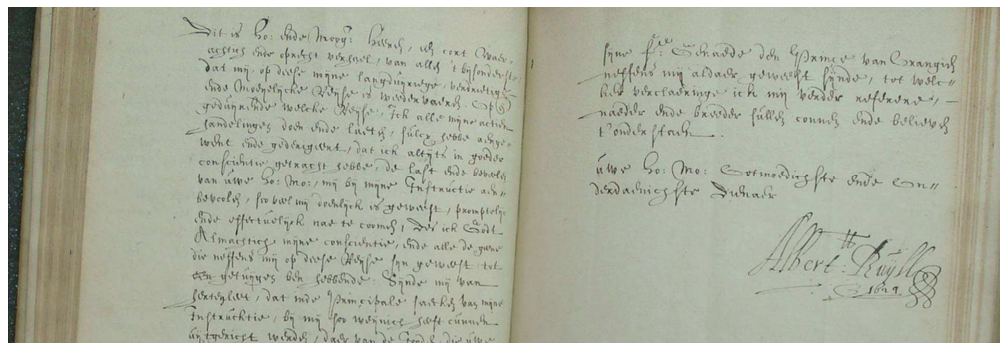 Dit is Ho: ende Moog: Heeren, een cort Waer-
achtich ende oprecht verhael, van allen 't bijsonderste
dat mij op diese mijne langduyrege, verdrietige
ende Moeyelijcke Reijse is wedervaeren. Op
geduijrende welcke Reijse, Ick alle mijne actien
handelingen doen ende laeten, sulcx hebbe aenge-
went ende gedirigeert, dat ick altijts in goeder
conscientie getracht hebbe, de last ende bevelen
van uwe Ho: Mo: mij bij mijne Instructie aen-
bevoolen, soo veel mij doenlijck is geweest, promptelijc
ende effectuelijck nae te coomen, Des ick Godt
Almachtich mijne conscientie, ende alle de gene
die neffens mij op diese Reijse sijn geweest tot
een getuijgen ben hebbende. Sijnde mij van
herten leet, dat inde Principale saecken van mijne
Instrucktie, bij mij soo weijnich heeft cunnen
uijtgericht werden, daer van de die uwe
sijne f.: Genaede den Prince van Orangien
neffens mij aldaer geweest sijnde, tot welc-
ker verclaeringe ick mij verder refereere,
naerder ende breeder sullen connen ende believen
t'onderstaen.
Uwe Ho: Mo: Ootmoedichste ende On-
derdaenichste Dienaer
Albert Ruijll
1624